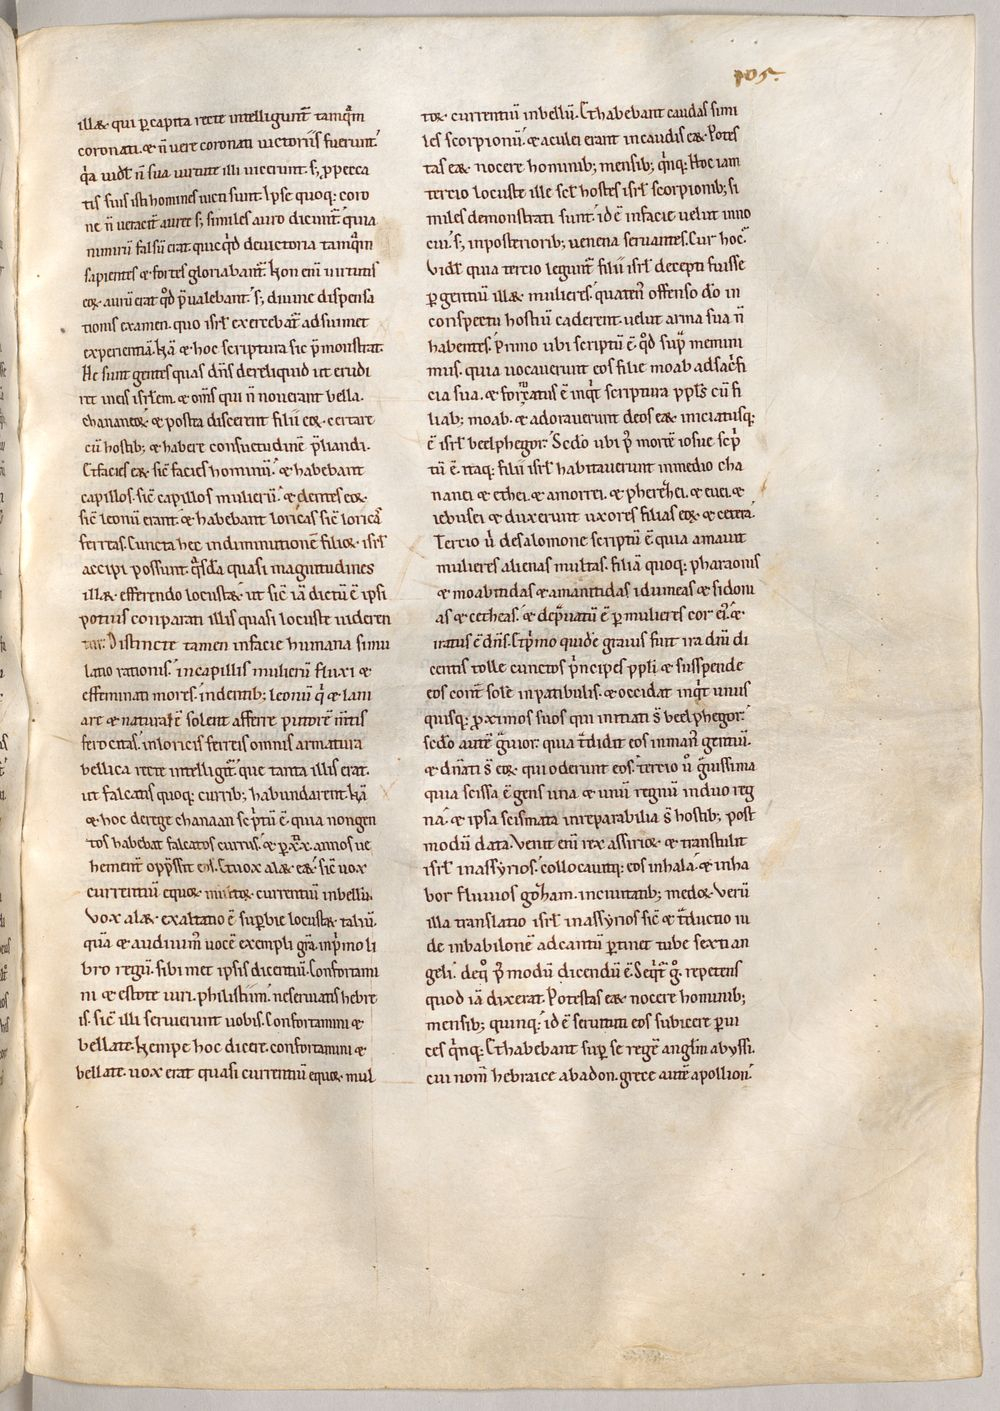 105.
illaꝝ. qui ꝑ capita recte intelligunt̄ tamqͣm
coronati. ⁊ n̄ vere coronati victoriis fuerunt.
qͥa vidꝉ n̄ sua virtute illi vicerunt. sꝫ ꝓ pecca
tis suis isti homines victi sunt. Ipse quoqꝫ coro
ne n̄ veracit̄ auree sꝫ similes auro dicunt̄. quia
nimirū falsū erat quicqͥd de victoria tamqͣm
sapientes ⁊ fortes gloriabant̄. Non enī virtutis
eoꝝ aurū erat qͦd p̄valebant. sꝫ divine dispensa
tionis examen. quo isrꝉ exercebat̄ ad sui met
experientiā. Nā ⁊ hoc scriptura sic p̄monstrat.
He sunt gentes quas dn̄s dereliquid ut erudi
ret in eis isrꝉem. ⁊ om̄s qui n̄ noverant bella.
chananeoꝝ. ⁊ postea discerent filii eoꝝ. certare
cū hostibꝫ ⁊ habere consuetudinē p̄liandi.
Et facies eaꝝ sic̄ facies hominū. ⁊ habebant
capillos. sic̄ capillos mulierū. ⁊ dentes eoꝝ.
sic̄ leonū erant. ⁊ habebant loricas sic̄ loricas
ferreas. Cuncta hec in diminutionē filioꝝ isrꝉ
accipi possunt. qͣsdā quasi magnitudines
illaꝝ efferendo locustaꝝ. ut sic̄ iā dictū ē ipsi
potius conparati illis quasi locuste videren
tur. Distincte tamen in facie humana simu
latio rationis. in capillis mulierū fluxi ⁊
effeminati mores. in dentibꝫ leonū qͥ ⁊ lani
are ⁊ naturalē solent afferre putorē
ferocitas. in loricis ferreis omnis armatura
bellica recte intelligit̄. que tanta illis erat.
ut falcatis quoqꝫ curribꝫ habundarent. Nā
⁊ hoc de rege chanaan sc̄ptū ē. quia nongen
tos habebat falcatos currus. ⁊ ꝑ xx. annos ve
hement̄ opp̄ssit eos. Et vox alaꝝ eaꝝ. sic̄ vox
currentiū equoꝝ multoꝝ. currentiū in bellū.
Vox alaꝝ. exaltatio ē suꝑbie locustaꝝ taliū.
quā ⁊ audivim᷒ voce exempli gr̄a. in pͥmo li
bro regū. sibimet ipsis dicentiū. Confortami
ni ⁊ estote viri. philistiim. ne serviatis hebre
is. sic̄ illi servierunt vobis. Confortamini ⁊
bellate. Nempe hoc dicere. confortamini ⁊
bellate. vox erat quasi currentiū equoꝝ. mul
toꝝ. currentiū in bellū. Et habebant caudas simi
les scorpionū. ⁊ aculei erant in caudis eaꝝ. Potes
tas eaꝝ nocere hominibꝫ mensibꝫ qͥnqꝫ. Hoc iam
tercio locuste ille scꝉ hostes isrꝉ scorpionibꝫ si
miles demonstrati sunt. id ē in facie velut inno
cui. sꝫ in posterioribꝫ venena servantes. Cur hoc.
Vidꝉ quia tercio legunt̄ filii isrꝉ decepti fuisse
ꝑ gentiū illaꝝ mulieres. quaten᷒ offenso dō in
conspectu hostiū caderent. velut arma sua n̄
habentes. Primo ubi scriptū ē. qͦd supͣ memini
mus. quia vocaverunt eos filie moab ad sacͥfi
cia sua. ⁊ fornicatus ē inqͥt scriptura pplꝰs cū fi
liabꝫ moab. ⁊ adoraverunt deos eaꝝ. iniciatusqꝫ
ē isrꝉ beelphegor. Scdo ubi p᷒ mortē iosue sc̄p
tū ē. itaqꝫ filii isrꝉ habitaverunt in medio cha
nanei ⁊ ethei. ⁊ amorrei. ⁊ pherezei. ⁊ evei. ⁊
iebusei ⁊ duxerunt uxores filias eoꝝ ⁊ cetera.
Tercio ū de salomone scriptū ē quia amavit
mulieres alienas multas. filiā quoqꝫ pharaonis
⁊ moabitidas ⁊ amanitidas idumeas ⁊ sidoni
as ⁊ cetheas. ⁊ dep̄vatū ē ꝑ mulieres cor ei᷒. ⁊
iratus ē dn̄s. Et pͥmo quidē gravis fuit ira dn̄i di
centis tolle cunctos pͥncipes ppli ⁊ suspende
eos cont̄ solē in patibulis. ⁊ occidat inqͥt unus
quisqꝫ ꝓximos suos qui initiati s̄ beelphegor.
Scdo autē gͣvior. quia t̄didit eos in man᷒ gentiū.
⁊ dn̄ati s̄ eoꝝ. qui oderunt eos. tercio ū gͣvissima
quia scissa ē gens una ⁊ unū regnū in duo reg
na. ⁊ ipsa scismata inreparabilia s̄ hostibꝫ post
modū data. Venit enī rex assirioꝝ ⁊ transtulit
isrꝉ in assyrios. collocavitqꝫ eos in hala. ⁊ inha
bor fluvios gozam. in civitatibꝫ medoꝝ. Verū
illa translatio isrꝉ in assyrios sic̄ ⁊ t̄ductio iu
de in babilonē ad cantū ꝑtinet tube sexti an
geli. de qͦ p᷒ modū dicendū ē. Seqͥt̄ gͦ. repetens
quod iā dixerat. Potestas eaꝝ nocere hominibꝫ
mensibꝫ quinqꝫ. id ē servituti eos subicere ꝑ vi
ces qͥnqꝫ. Et habebant suꝑ se regē angꝉm abyssi.
cui nom̄ hebraice abadon. grece autē apollion.